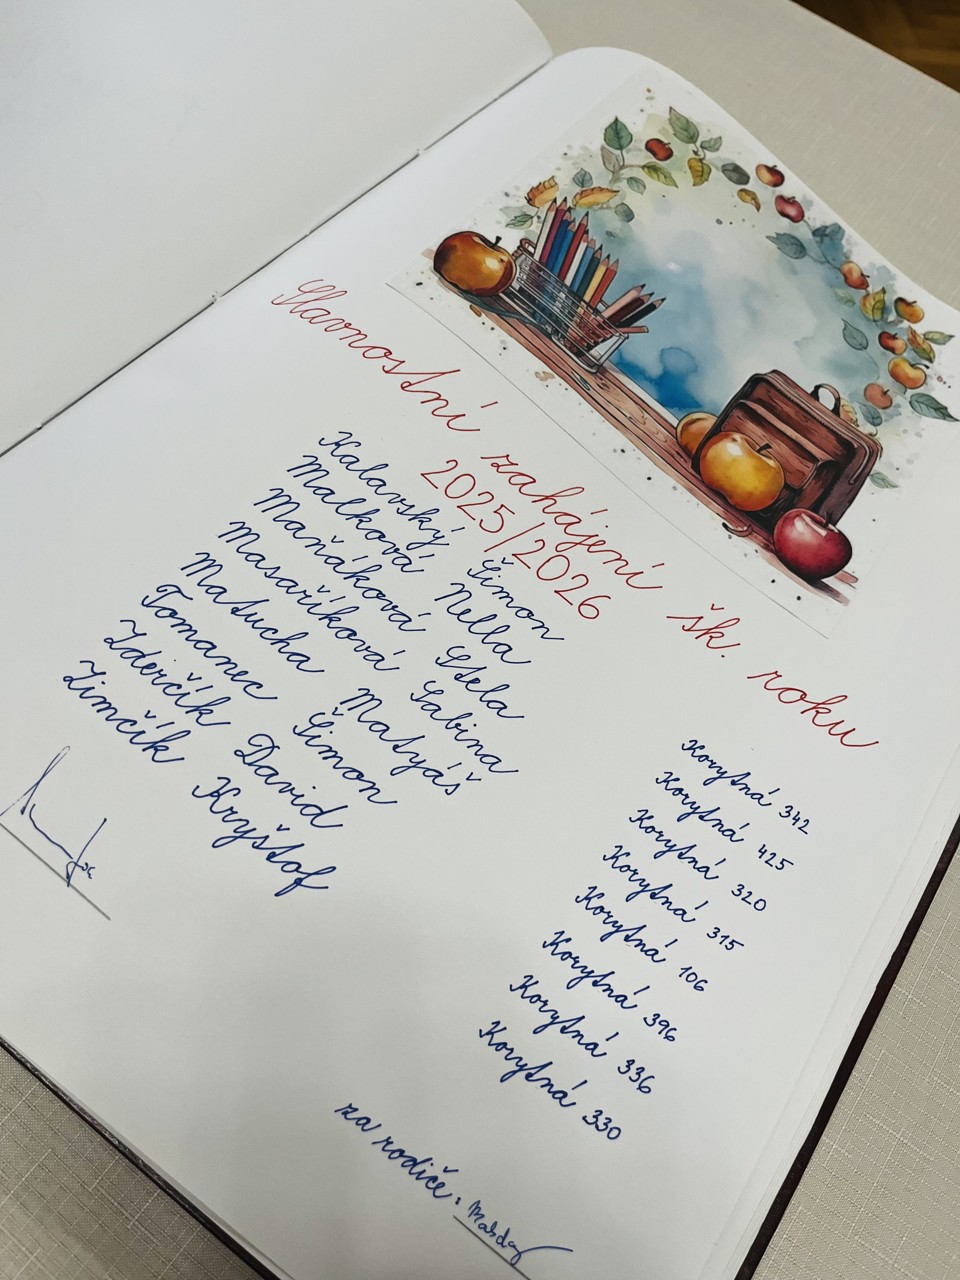 Slavnostní zahájení šk. roku
2025/2026
Kalavský Šimon Korytná 342
Malková Nella Korytná 425
Maňáková Stela Korytná 320
Masaříková Sabina Korytná 315
Matucha Matyáš Korytná 106
Tomanec Šimon Korytná 396
Zderčík David Korytná 336
Zimčík Kryštof Korytná 330
za rodiče: